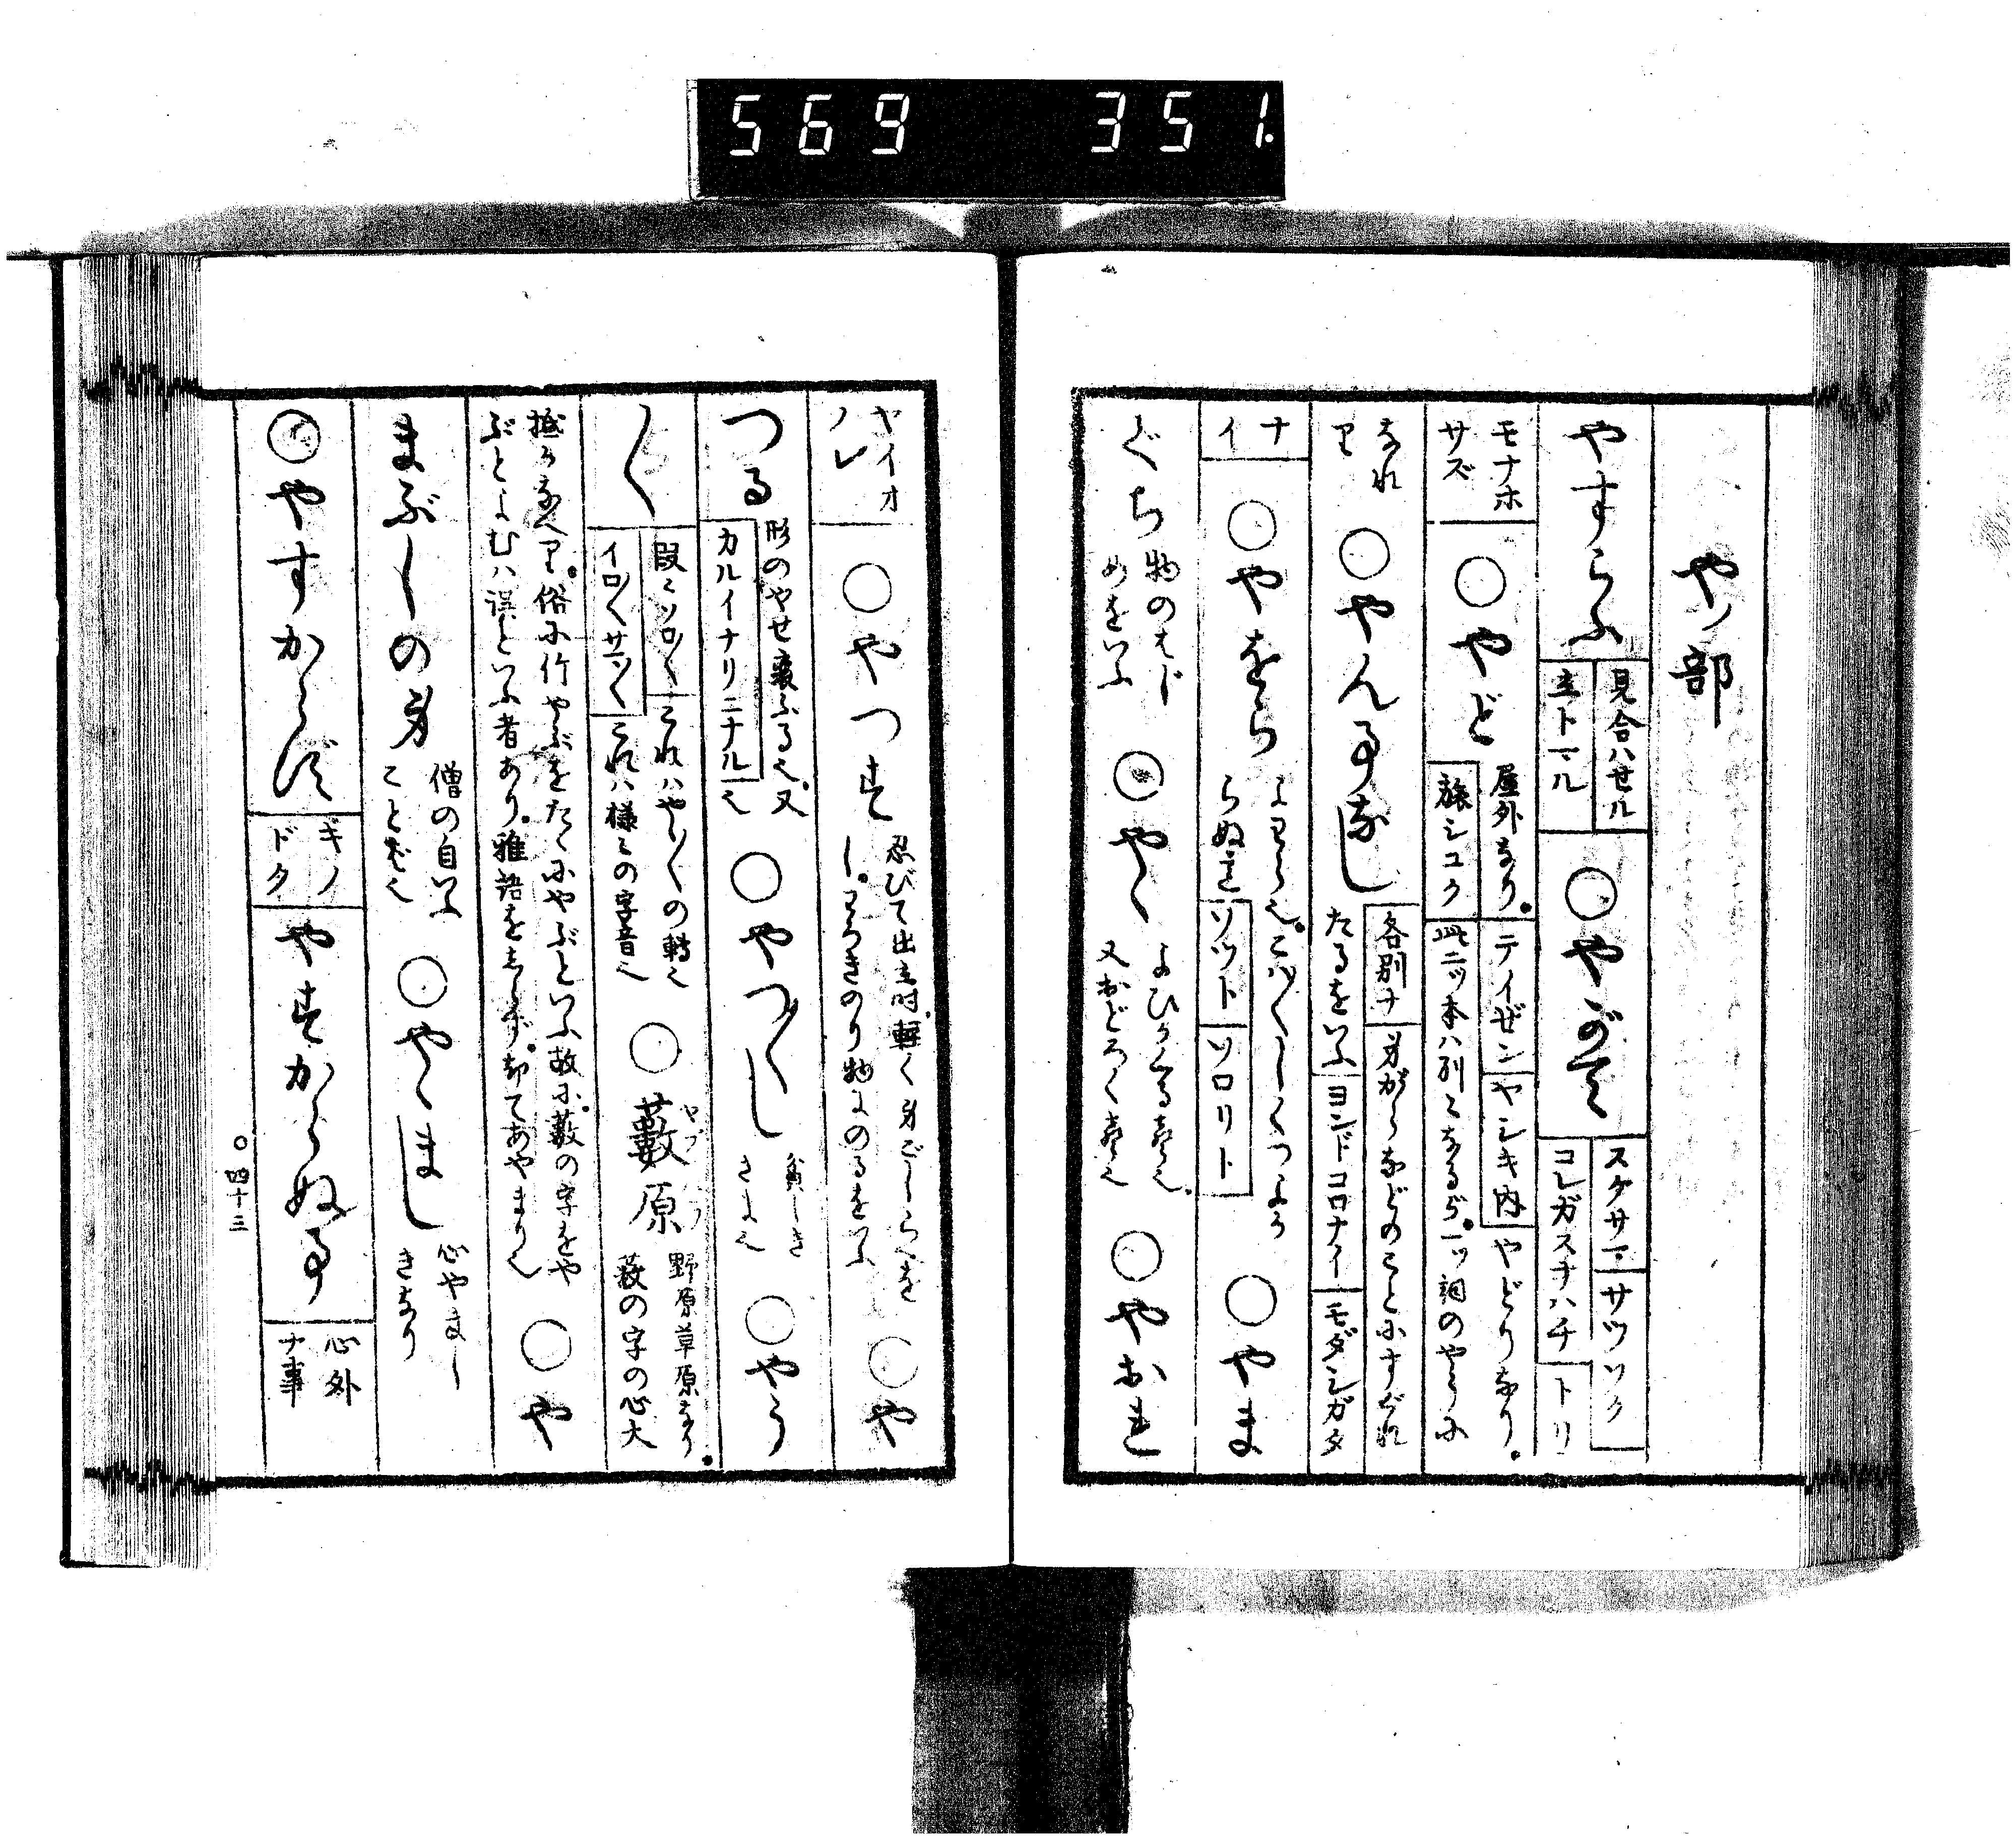 569 351.
やノ部
やすらふ 見合ハセル 立トマル ○やがて スグサマ サツソク コレガスナハチ トリ
モナホサズ ○やど 屋外なり。 テイゼン ヤシキ内 やどりなり。 旅シユク 此二ツ本ハ別々なるが。一ツ詞のやうに
なれり ○やんごなし 各別ナ 身がらなどのことにすぐれたるをいふ ヨンドコロナイ モダシガタ
ナイ ○やをら ソツト ソロリト ○やま
ぐち 物のはじめをいふ ○やゝ よびかくる声也。又おどろく声也 ○やおれ
ヤイオノレ ○やつす 忍びて出る時。軽く身ごしらへをし。 ○や
つる 形のやせ衰ふる也。又 カルイナリニナル也 ○やつ〳〵し 貧しきさま也 ○やう
〳〵 段々ソロ〳〵 これハやゝ〳〵の転也 イロ〳〵サマ〴〵 これハ様々の字音也 ○藪原 ヤブハラ 野原草原なり。藪の字の心大
抵かなへり。俗に竹やぶをたゞにやぶといふ故に。藪の字をやぶとよむハ誤といふ者あり。雅語をしらず。却てあやまり也 ○や
まぶしの身 僧の自いふことば也 ○やゝまし 心やましきなり
○やすからず キノドク やすからぬ事 心外ナ事
○四十三